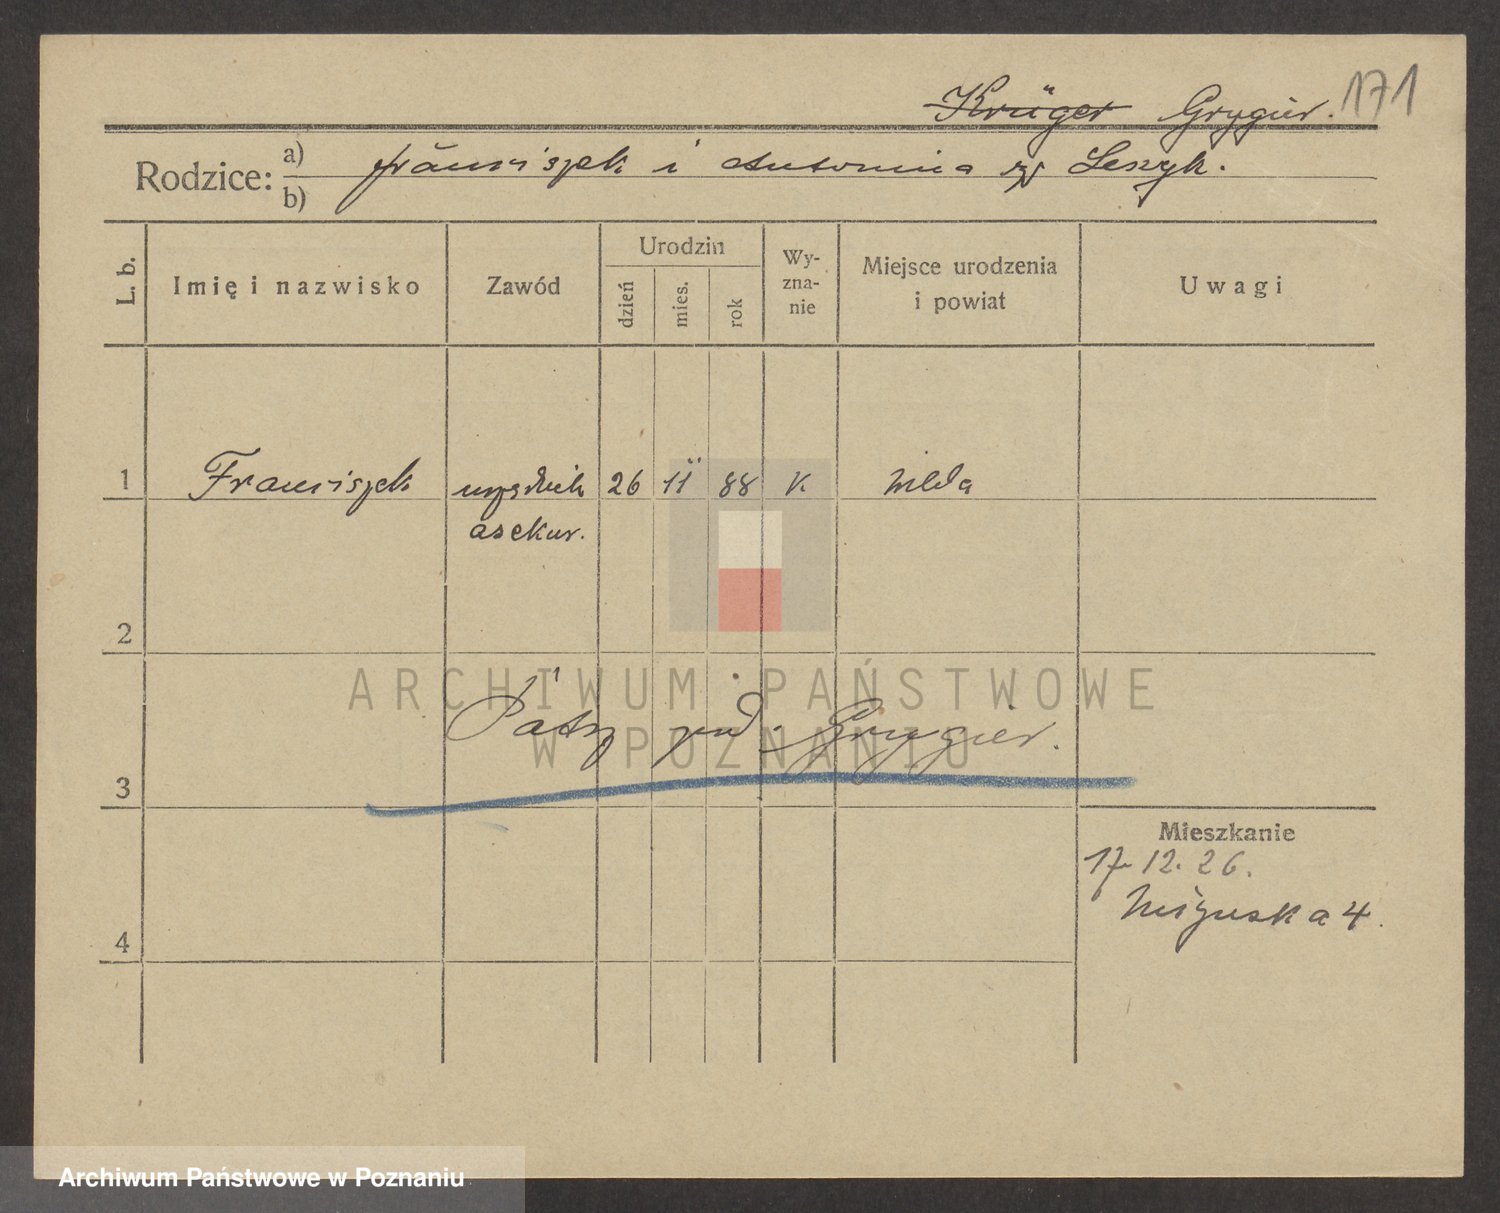 Krüger Grygier. 171
Rodzice: a) Franciszek i Antonina zd Leszyk.
b)
L. b.
Imię i nazwisko
Zawód
Urodzin
dzień
mies.
rok
Wy-
zna-
nie
Miejsce urodzenia
i powiat
Uwagi
1 Franciszek urzędnik 26 11 88 K Wilda
asekur.
2
ARCHIWUM PAŃSTWOWE
W POZNANIU
Patrz pod: Grygier.
3
Mieszkanie
17.12.26.
4
Archiwum Państwowe w Poznaniu